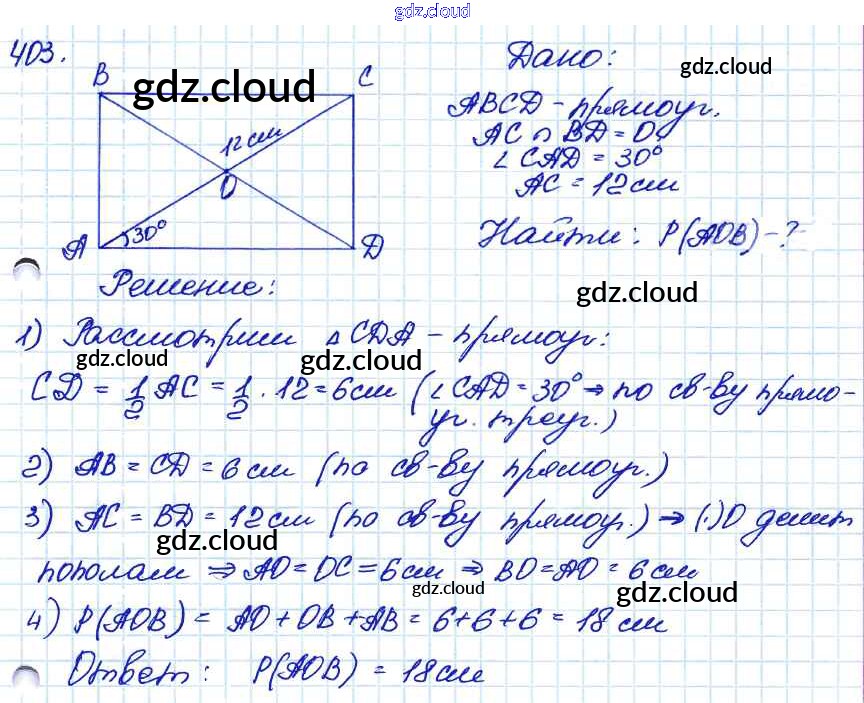 gdz.cloud
403.
B
gdz.cloud
C
12 см
O
A
30°
D
Дано:
gdz.cloud
ABCD - прямоуг.
AC ∩ BD = O
∠ CAD = 30°
AC = 12 см
Найти: P(AOB) - ?
Решение:
gdz.cloud
1) Рассмотрим △ CDA - прямоуг:
gdz.cloud
gdz.cloud
CD = 1/2 AC = 1/2 · 12 = 6 см (∠ CAD = 30° ⇒ по св-ву прямо-
уг. треуг.)
2) AB = CD = 6 см (по св-ву прямоуг.)
gdz.cloud
3) AC = BD = 12 см (по св-ву прямоуг.) ⇒ (·) O делит
gdz.cloud
пополам ⇒ AO = OC = 6 см ⇒ BO = AO = 6 см
gdz.cloud
gdz.cloud
4) P(AOB) = AO + OB + AB = 6 + 6 + 6 = 18 см
Ответ: P(AOB) = 18 см